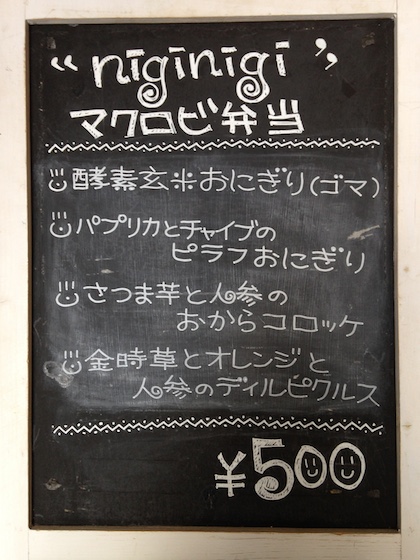 "niginigi"
マクロビ弁当
酵素玄米おにぎり(ゴマ)
パプリカとチャイブの
ピラフおにぎり
さつま芋と人参の
おからコロッケ
金時草とオレンジと
人参のディルピクルス
¥500